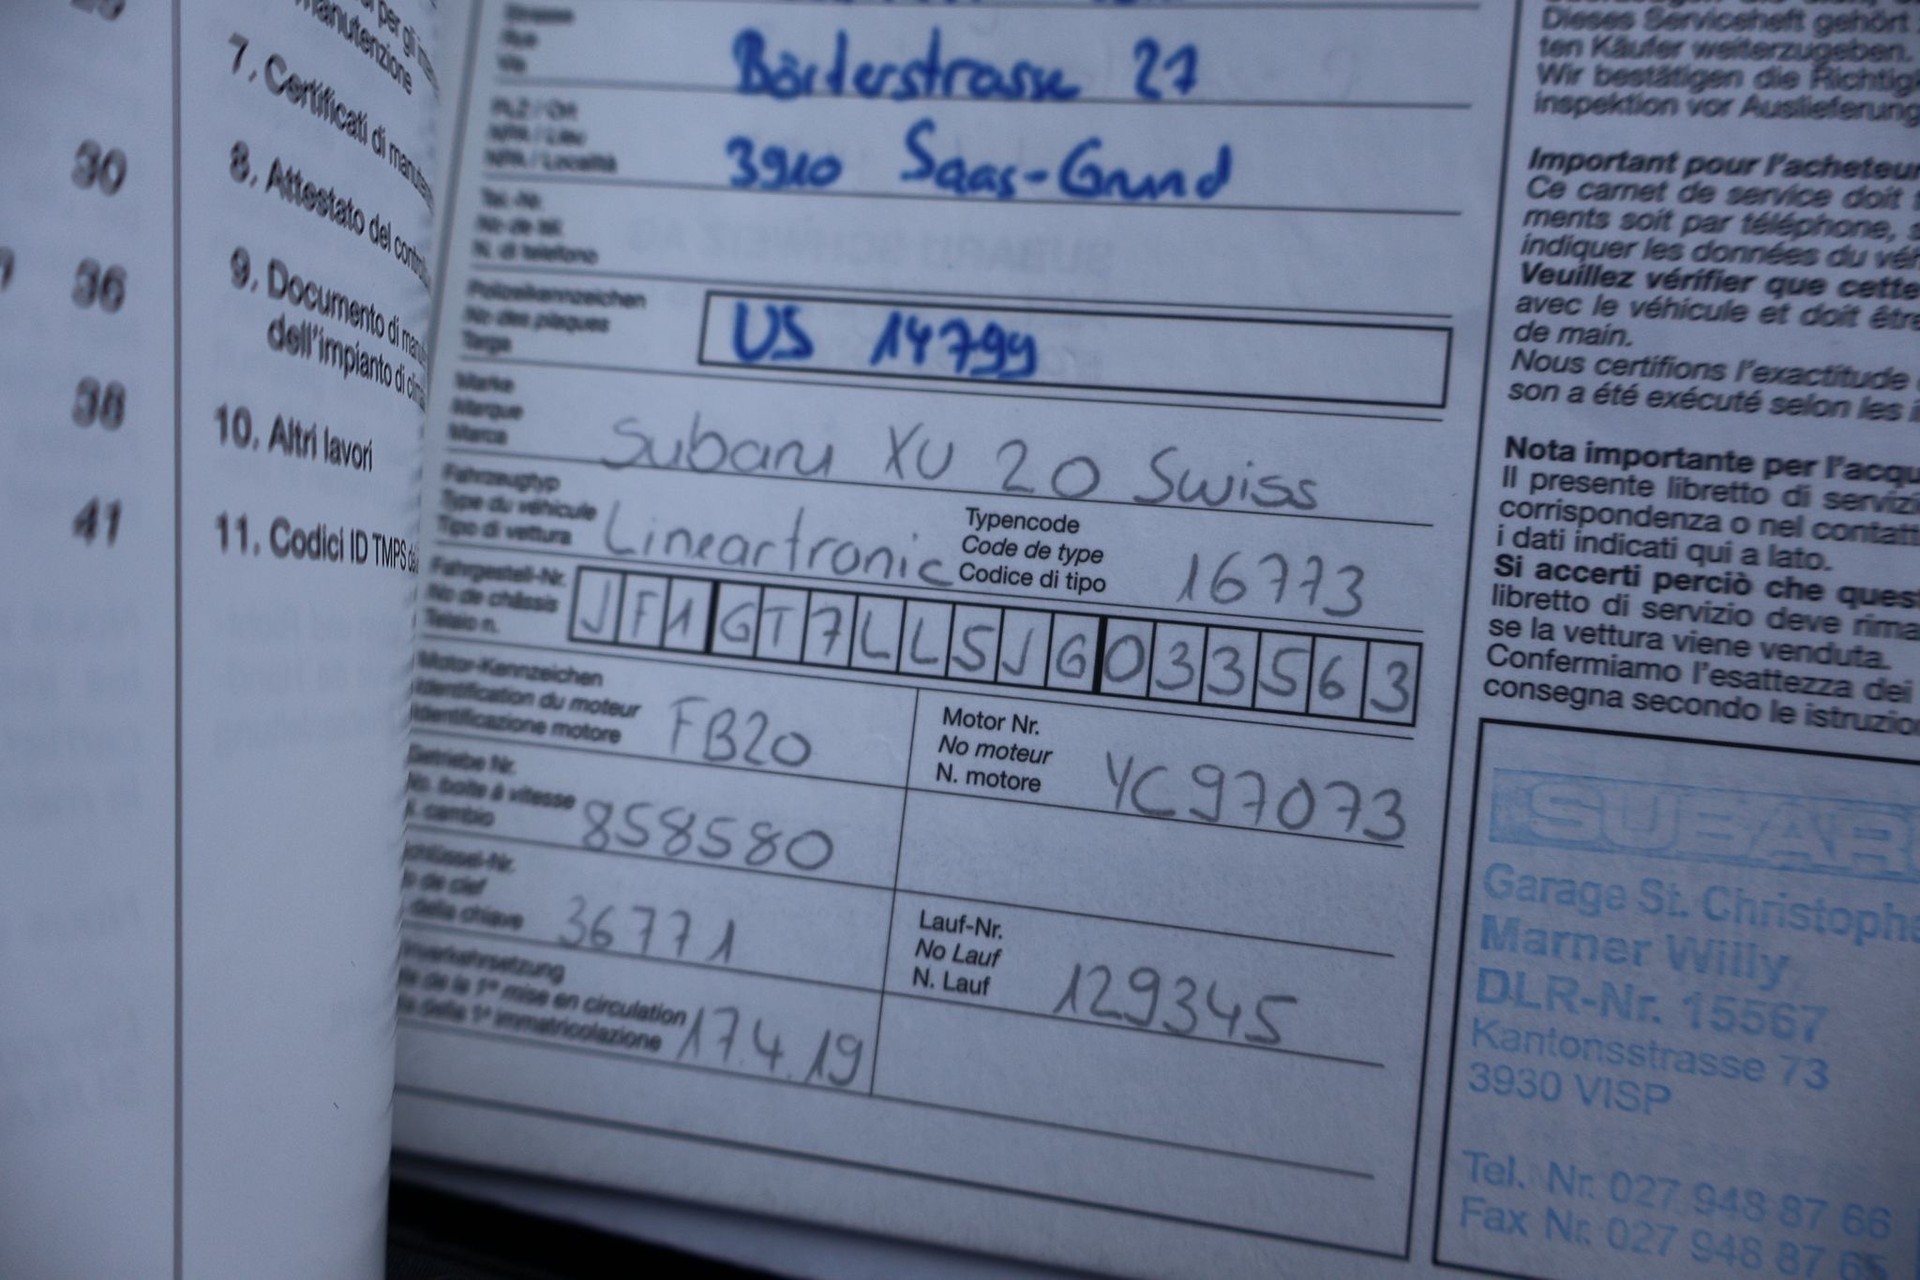 manutenzione
7. Certificati di
30
8. Attestato del
36
9. Documento di
dell'impianto di
38
10. Altri lavori
41
11. Codici ID TMPS
Strasse
Rue
Via
27
PLZ / Ort
NPA / Lieu
NPA / Località
3910 Saas-Grund
Tel.-No
No de tél.
N. di telefono
Polizeikennzeichen
No des plaques
Targa
14799
Marke
Marque
Marca
Subaru XV 20 Swiss
Fahrzeugtyp
Type du véhicule
Tipo di vettura
Lineartronic
Typencode
Code de type
Codice di tipo
16773
Fahrgestell-Nr.
No de châssis
Telaio n.
JF1GT7LL5JG033563
Motor-Kennzeichen
Identification du moteur
Identificazione motore
FB20
Motor Nr.
No moteur
N. motore
YC97073
Getriebe Nr.
No. boîte à vitesse
cambio
858580
de clef
della chiave
36771
Lauf-Nr.
No Lauf
N. Lauf
129345
de la 1re mise en circulation
della 1a immatricolazione
17.4.19
Dieses Serviceheft gehört
ten Käufer weiterzugeben.
Wir bestätigen die
inspektion vor Auslieferung
Important pour l'acheteur
Ce carnet de service doit
ments soit par téléphone,
indiquer les données du
Veuillez vérifier que cette
avec le véhicule et doit être
de main.
Nous certifions l'exactitude
son a été exécuté selon les
Nota importante per
Il presente libretto di
corrispondenza o nel
i dati indicati qui a lato.
Si accerti perciò che
libretto di servizio deve
se la vettura viene venduta.
Confermiamo l'esattezza dei
consegna secondo le
SUBARU
Garage St.
Marner Willy
DLR-Nr. 15567
Kantonsstrasse 73
3930 VISP
Tel. Nr. 027 948 87 66
Fax Nr. 027 948 87 65